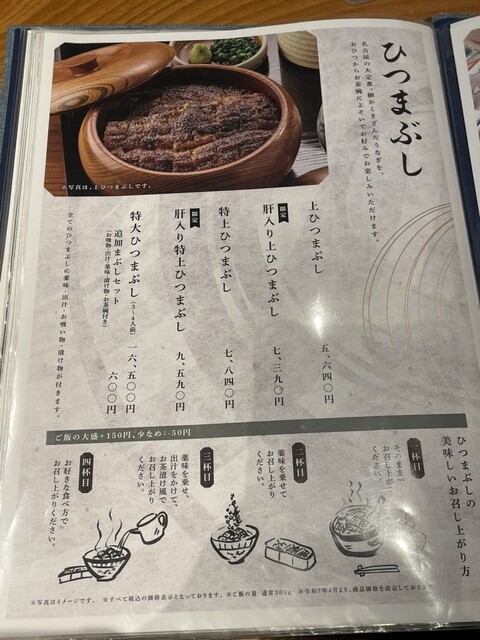 ひつまぶし
名古屋の大定番。細かくきざんだうなぎを、
おひつからお茶碗によそいでお好みでお楽しみいただけます。
※写真は、上ひつまぶしです。
上ひつまぶし 五、六四〇円
限定
肝入り上ひつまぶし 七、三九〇円
特上ひつまぶし 七、八四〇円
限定
肝入り特上ひつまぶし 九、五九〇円
特大ひつまぶし(3〜4人前) 一六、五〇〇円
追加まぶしセット 六〇〇円
(お吸物・出汁・薬味・漬け物・お茶碗付き)
全てのひつまぶしに薬味・出汁・お吸い物・漬け物が付きます。
ご飯の大盛+150円、少なめ:-50円
ひつまぶしの
美味しいお召し上がり方
一杯目
そのまま
お召し上がり
二杯目
薬味を乗せて
お召し上がり
ください。
三杯目
薬味を乗せ、
出汁をかけて、
お茶漬け風で
お召し上がり
ください。
四杯目
お好きな食べ方で
お召し上がりください。
※写真はイメージです。 ※すべて税込の価格表示となっております。 ※ご飯の量 通常300g ※令和7年4月より、商品価格を改定しており